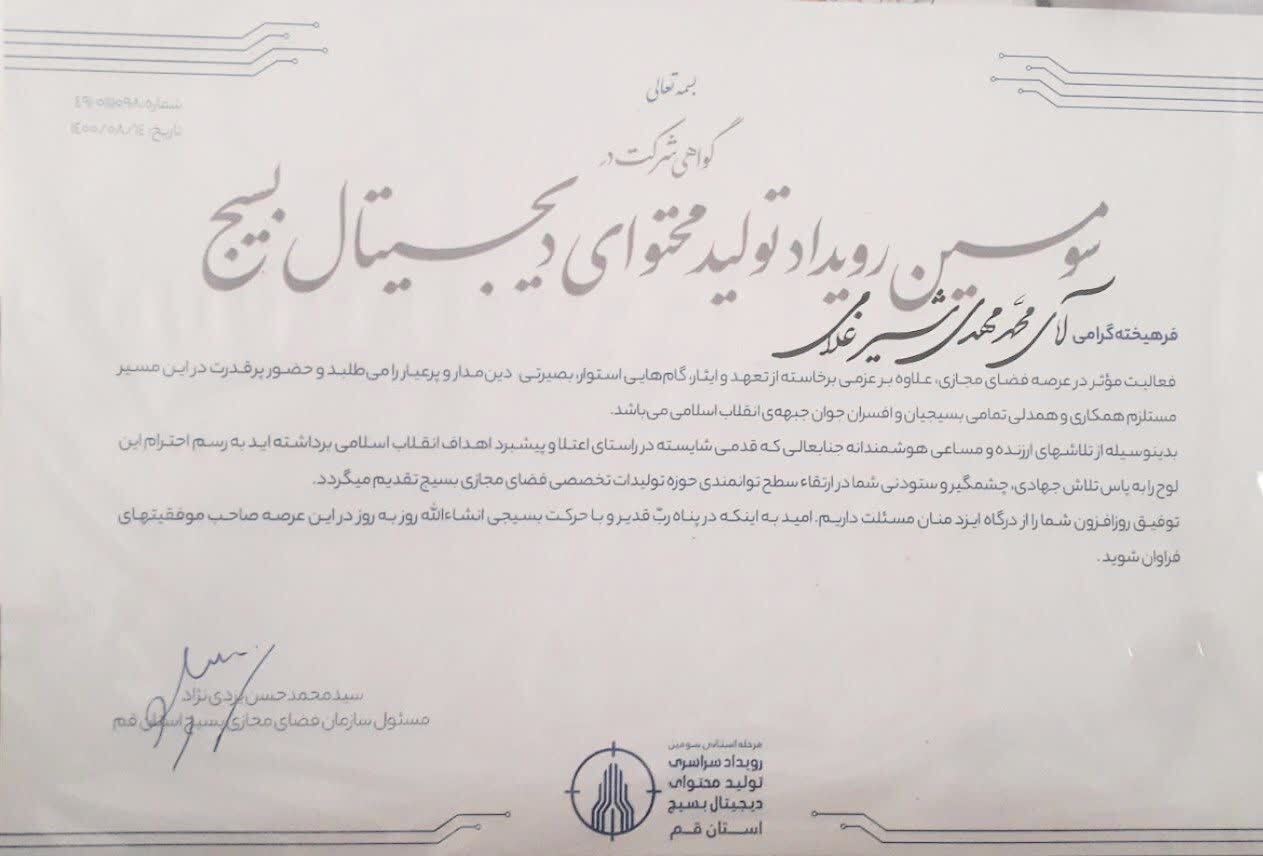 بسمه تعالی
گواهی شرکت در
سومین رویداد تولید محتوای دیجیتال بسیج
فرهیخته گرامی آقای محمد مهدی شیر غلامی
فعالیت مؤثر در عرصه فضای مجازی، علاوه بر عزمی برخاسته از تعهد و ایثار، گام‌هایی استوار، بصیرتی دین‌مدار و پرعیار را می‌طلبد و حضور پرقدرت در این مسیر
مستلزم همکاری و همدلی تمامی بسیجیان و افسران جوان جبهه‌ی انقلاب اسلامی می‌باشد.
بدینوسیله از تلاشهای ارزنده و مساعی هوشمندانه جنابعالی که قدمی شایسته در راستای اعتلا و پیشبرد اهداف انقلاب اسلامی برداشته اید به رسم احترام این
لوح را به پاس تلاش جهادی، چشمگیر و ستودنی شما در ارتقاء سطح توانمندی حوزه تولیدات تخصصی فضای مجازی بسیج تقدیم میگردد.
توفیق روزافزون شما را از درگاه ایزد منان مسئلت داریم. امید به اینکه در پناه ربّ قدیر و با حرکت بسیجی انشاءالله روز به روز در این عرصه صاحب موفقیتهای
فراوان شوید.
سید محمد حسن یزدی نژاد
مسئول سازمان فضای مجازی بسیج استان قم
مرحله استانی سومین
رویداد سراسری
تولید محتوای
دیجیتال بسیج
استان قم